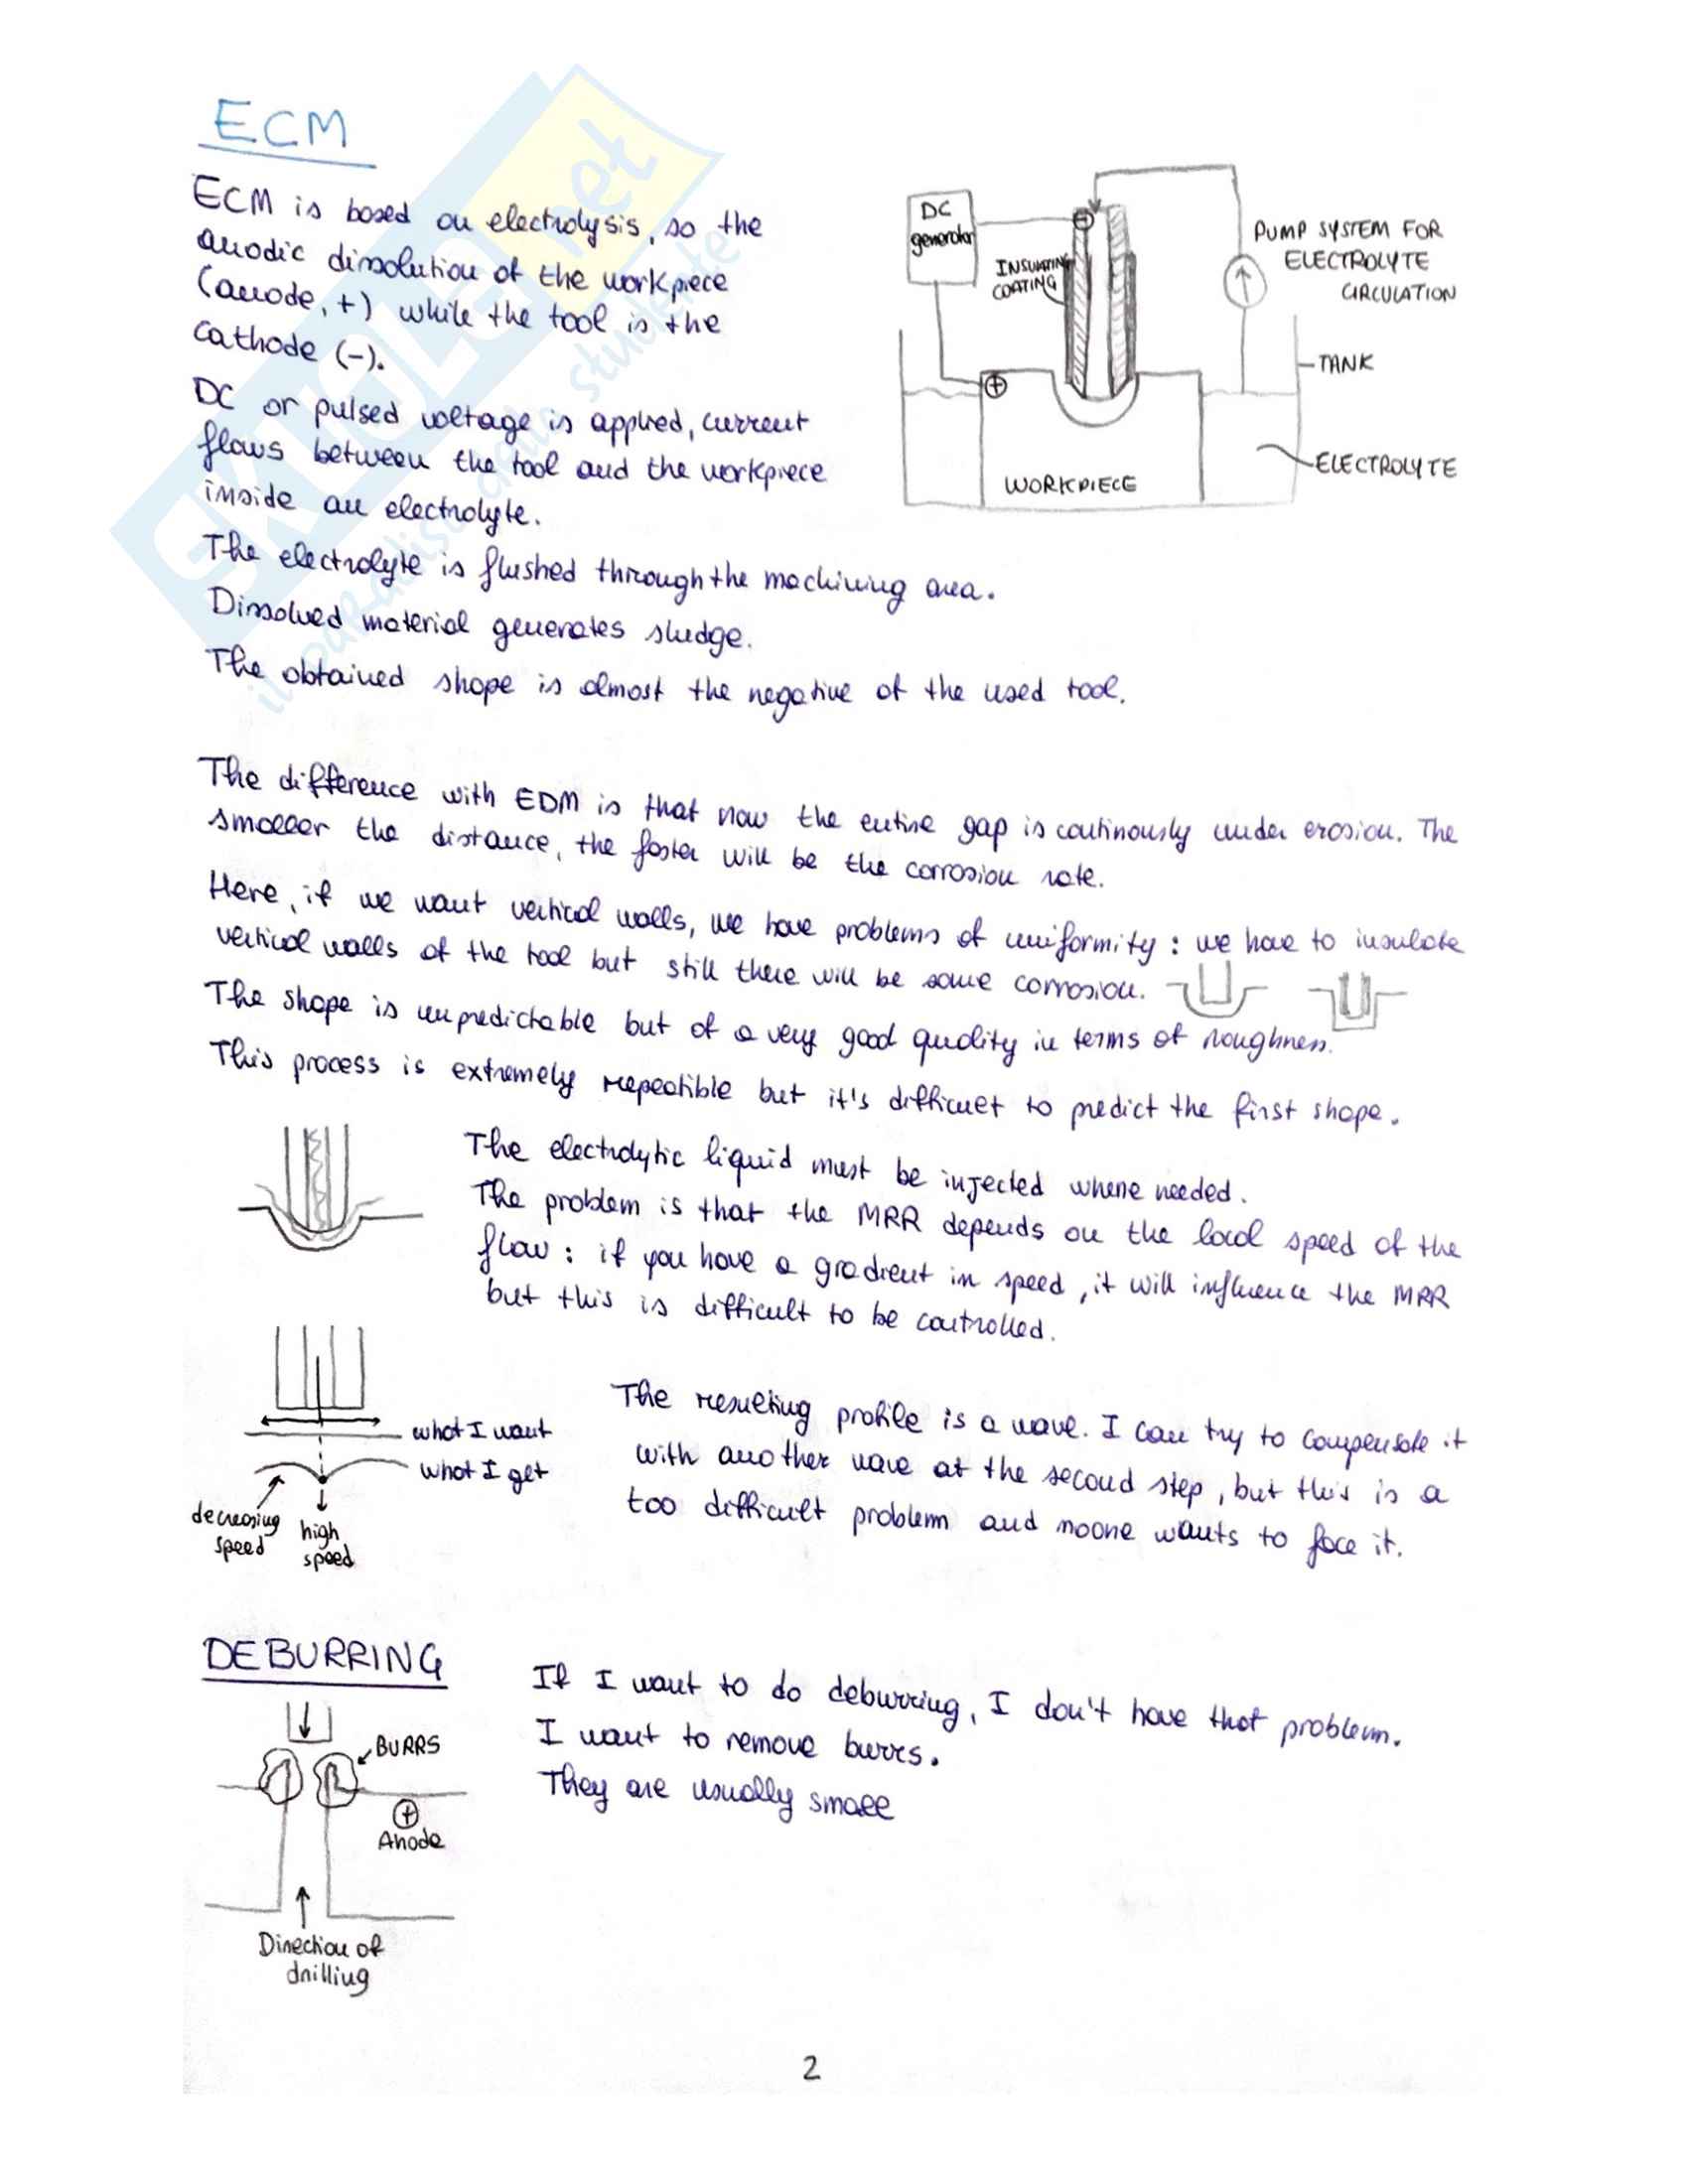 ECM
ECM is based on electrolysis, so the
anodic dissolution of the workpiece
(anode, +) while the tool is the
cathode (-).
DC or pulsed voltage is applied, current
flows between the tool and the workpiece
inside an electrolyte.
The electrolyte is flushed through the machining area.
Dissolved material generates sludge.
The obtained shape is almost the negative of the used tool.
DC
generator
INSULATING
COATING
PUMP SYSTEM FOR
ELECTROLYTE
CIRCULATION
TANK
ELECTROLYTE
WORKPIECE
The difference with EDM is that now the entire gap is continously under erosion. The
smaller the distance, the faster will be the corrosion rate.
Here, if we want vertical walls, we have problems of uniformity: we have to insulate
vertical walls of the tool but still there will be some corrosion.
The shape is unpredictable but of a very good quality in terms of roughness.
This process is extremely repeatible but it's difficult to predict the first shape.
The electrolytic liquid must be injected where needed.
The problem is that the MRR depends on the local speed of the
flow: if you have a gradient in speed, it will influence the MRR
but this is difficult to be controlled.
what I want
what I get
decreasing
speed
high
speed
The resulting profile is a wave. I can try to compensate it
with another wave at the second step, but this is a
too difficult problem and noone wants to face it.
DEBURRING
BURRS
+
Anode
Direction of
drilling
If I want to do deburring, I don't have that problem.
I want to remove burrs.
They are usually small
2
SKUOLA.net
il paradiso dello studente